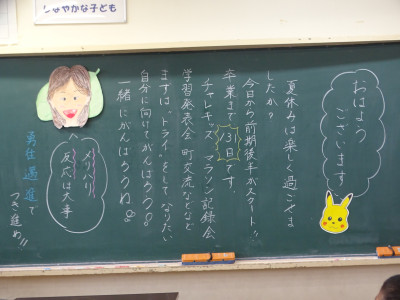 しなやかな子ども
おはよう
ございます
夏休みは楽しく過ごせま
したか?
今日から前期後半がスタート!!
卒業まで131日です。
チャレキッズ マラソン記録会
学習発表会 町交流などなど
まずは"トライ"をしてなりたい
自分に向けてがんばろう!
一緒にがんばろうね!
メリハリ
反応は大事
勇往邁進で
つき進め!!